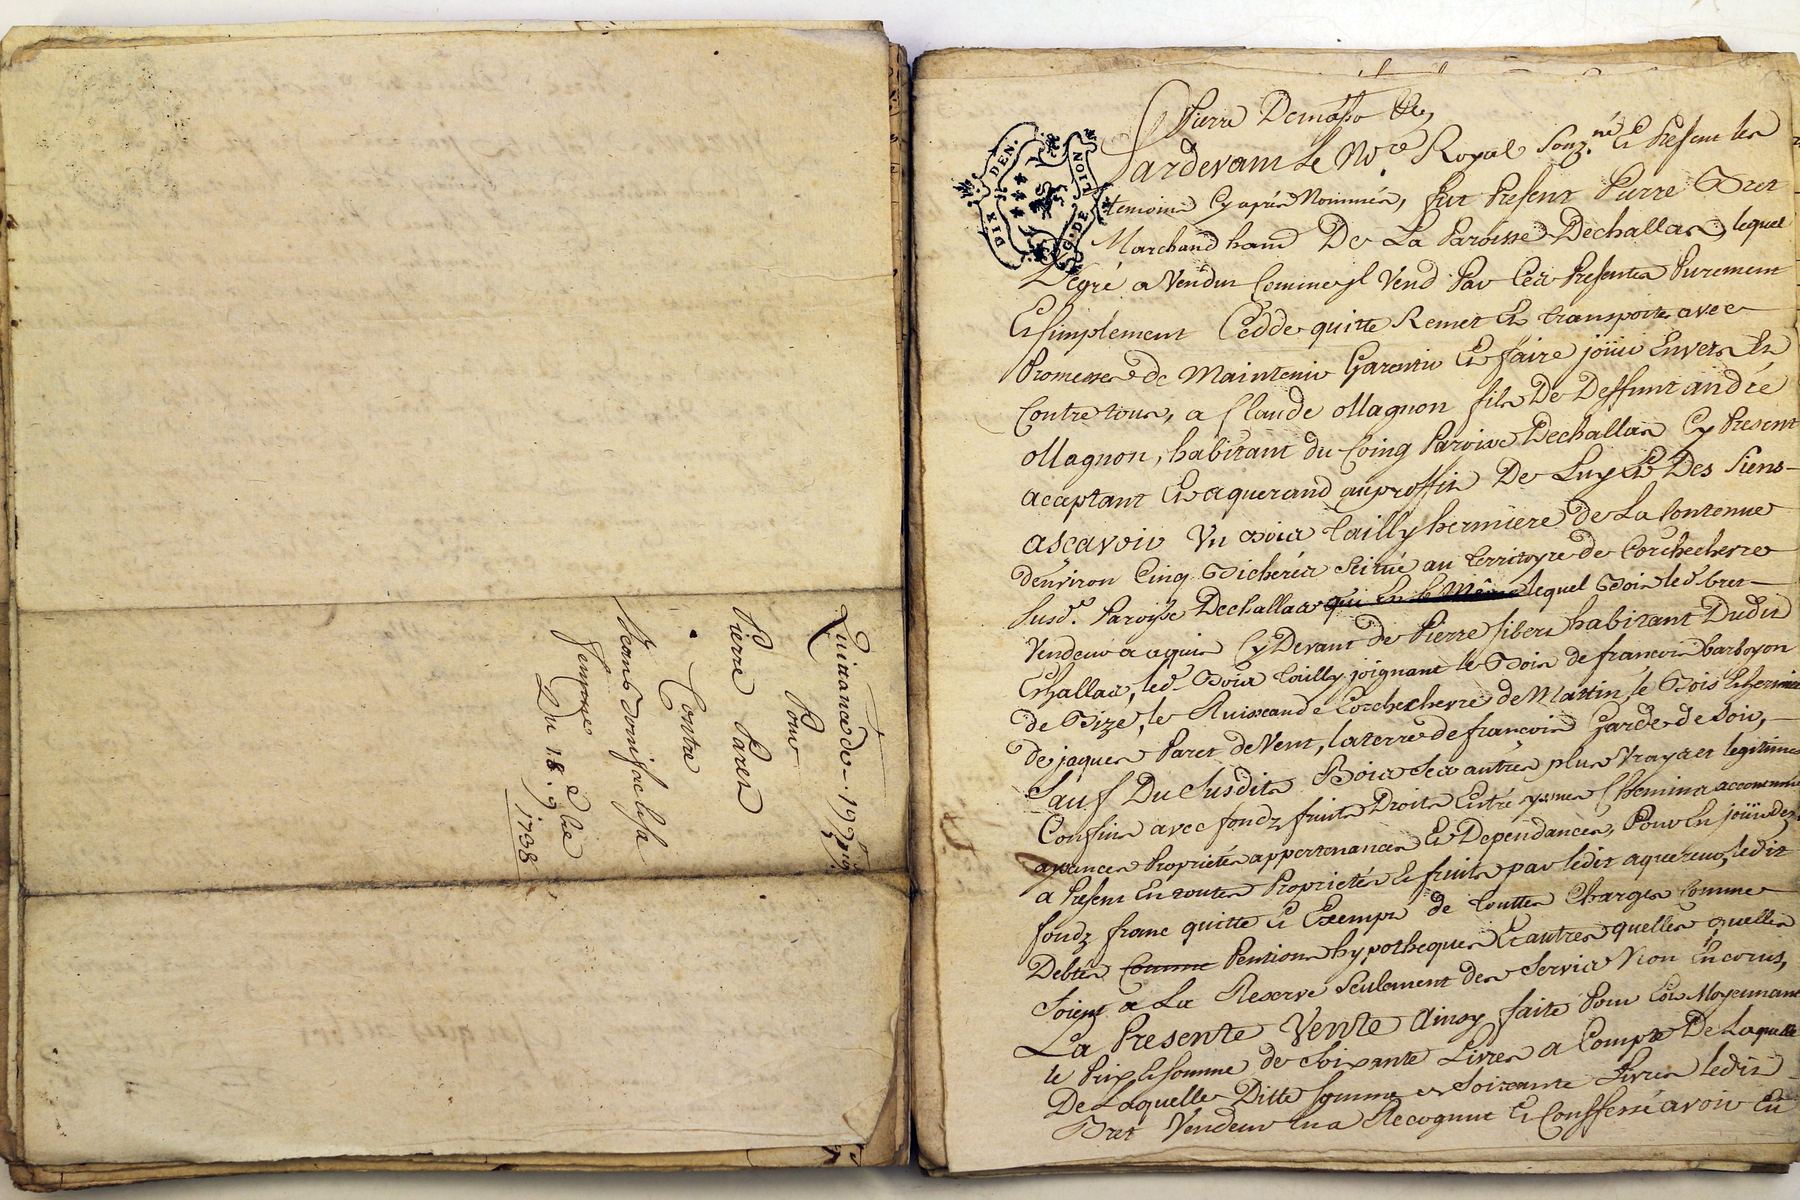 Quittance de
Pour
Pierre Paret
Contre
femme
Du 18. 9bre
1738
DIX DEN.
G. DE LION
Pardevant le No.re Royal souz.né Et Presen les
temoins Cy aprés Nommés, fut Present Pierre Bret
Marchand De La Paroisse Dechallas, lequel
Degré a Vendu Comme jl Vend Par Ces Presentes Purement
Et simplement Cedde quitte Remet Et transporte avec
Promesse de Maintenir Garentir Et faire joüir Envers Et
Contre tous, a Claude ollagnon fils De Deffunt andré
ollagnon, habitant du Coing Paroisse Dechallas Cy Present
acceptant Et aquerand au proffit De Luy Et Des Siens
ascavoir Vn Bois tailly hermiere de La Contenue
denviron Cinq Bicherés Scitué au territoyre de Corchechevre
Susd.e Paroisse Dechallas qui Est le Même lequel Bois led. bret
Vendeur a aquis Cy Devant de Pierre habitant Dudit
Eschallas, led. Bois tailly joignant le Bois de francois barboyon
de Bize, le Ruisseau de Corchechevre de Matin, le Bois
de jaques Paret de Vent, la terre de francois Garde de soir,
Sauf Du Susdits Bois ses autres plus Vrays et legitimes
Confins avec fondz fruits Droits Entré ysues Chemins
Proprietés appertenances Et Dependances, Pour En joüir dez
a Present En toutes Proprietés Et fruits par ledit aquereur, ledit
fondz franc quitte Et Exempt de touttes Charges Comme
Debtes Comme Pentions hypotheques Et autres quelles quelles
Soient a La Reserve Seulement des Servis Non Encorus,
La Presente Vente Ainsy faite Pour Et Moyennant
le Prix Et somme de Soixante Livres a Compte De Laquelle
De Laquelle Ditte Somme de Soixante Livres ledit
Bret Vendeur En a Recognut Et Confessé avoir Eu